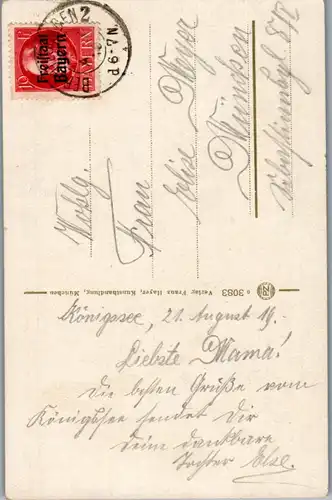 BEN 2
d 6-7 N
Freistaat
Bayern
BAYERN
Wohlg.
Frau
Elise Meyer
München
Verlag Franz Hayer, Kunsthandlung, München
3083
Königssee, 21. August 19.
Liebste Mama!
Die besten Grüße vom
Königssee sendet Dir
Deine dankbare
Tochter Else.